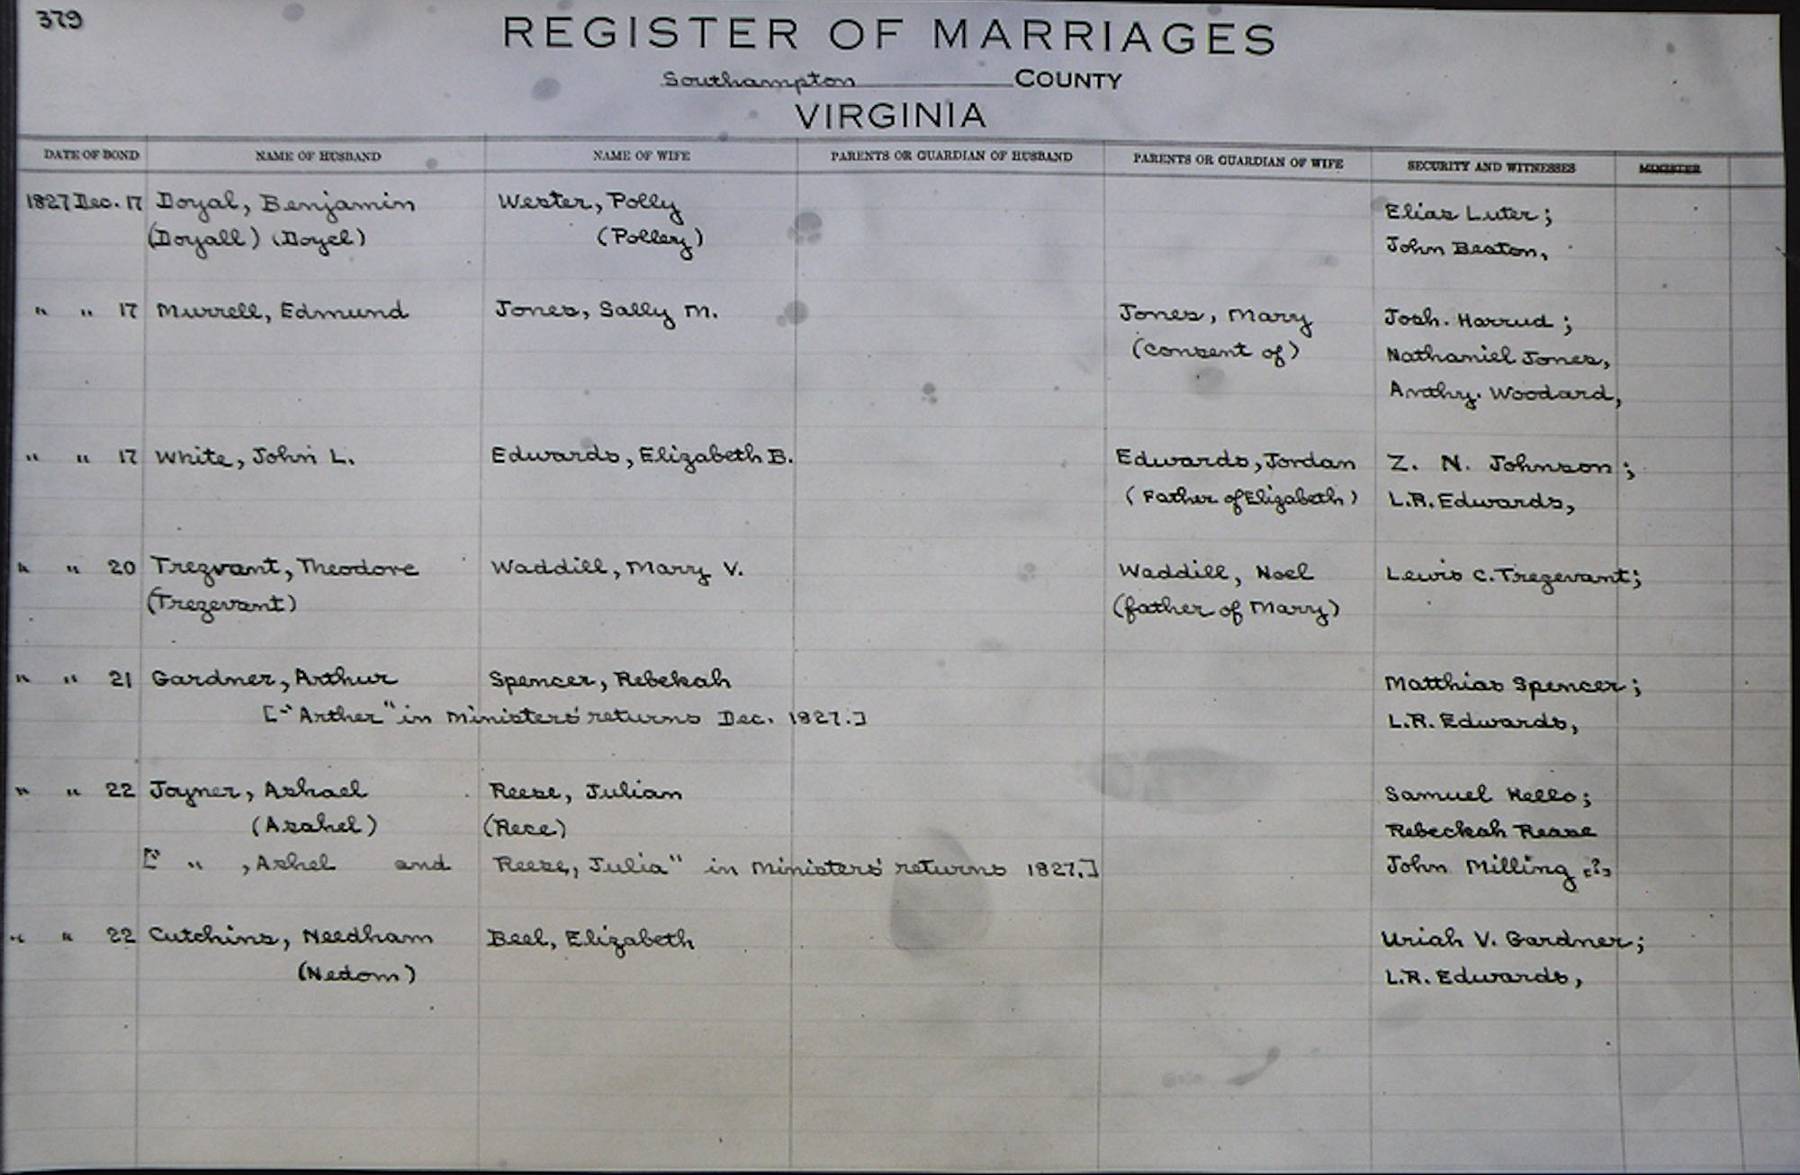 379
REGISTER OF MARRIAGES
Southampton COUNTY
VIRGINIA
DATE OF BOND NAME OF HUSBAND NAME OF WIFE PARENTS OR GUARDIAN OF HUSBAND PARENTS OR GUARDIAN OF WIFE SECURITY AND WITNESSES MINISTER
1827 Dec. 17 Doyal, Benjamin Wester, Polly Elias Luter;
(Doyall) (Doyel) (Pollery) John Beaton,
" " 17 Murrell, Edmund Jones, Sally M. Jones, Mary Josh. Harrud;
(consent of) Nathaniel Jones,
Anthy. Woodard,
" " 17 White, John L. Edwards, Elizabeth B. Edwards, Jordan Z. N. Johnson;
(Father of Elizabeth) L.R. Edwards,
" " 20 Trezvant, Theodore Waddill, Mary V. Waddill, Noel Lewis C. Trezevant;
(Trezevant) (father of Mary)
" " 21 Gardner, Arthur Spencer, Rebekah Matthias Spencer;
[-"Arther" in Ministers' returns Dec. 1827.] L.R. Edwards,
" " 22 Joyner, Ashael Reese, Julian Samuel Kello;
(Asahel) (Rece) Rebeckah Rease
[" " , Ashel and Reese, Julia" in Ministers' returns 1827.] John Milling [?]
" " 22 Cutchins, Needham Beel, Elizabeth Uriah V. Gardner;
(Nedom) L.R. Edwards,